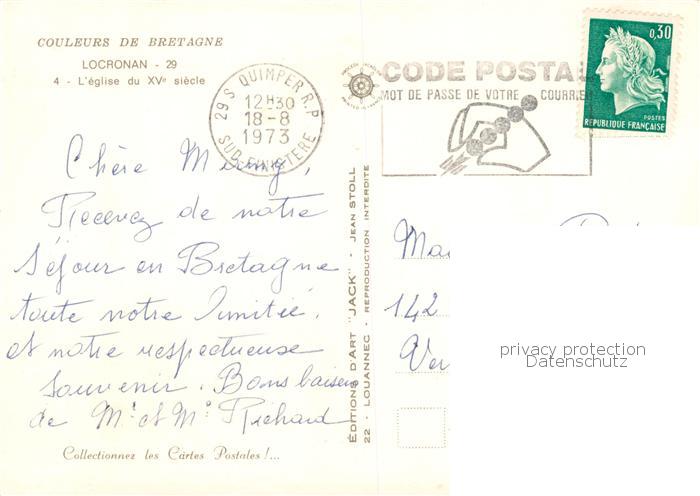 COULEURS DE BRETAGNE
LOCRONAN - 29
4 - L'église du XVe siècle
29 S QUIMPER R.P
12H30
18-8
1973
SUD-FINISTERE
CODE POSTAL
MOT DE PASSE DE VOTRE COURRIER
0,30
POSTES
REPUBLIQUE FRANÇAISE
Chère
Recevez de notre
Séjour en Bretagne
toute notre Amitié.
et notre respectueuse
Souvenir. Bons baisers
de Mr et Me Richard
Collectionnez les Cartes Postales !...
ÉDITIONS D'ART "JACK" - JEAN STOLL
22 - LOUANNEC - REPRODUCTION INTERDITE
142
privacy protection
Datenschutz